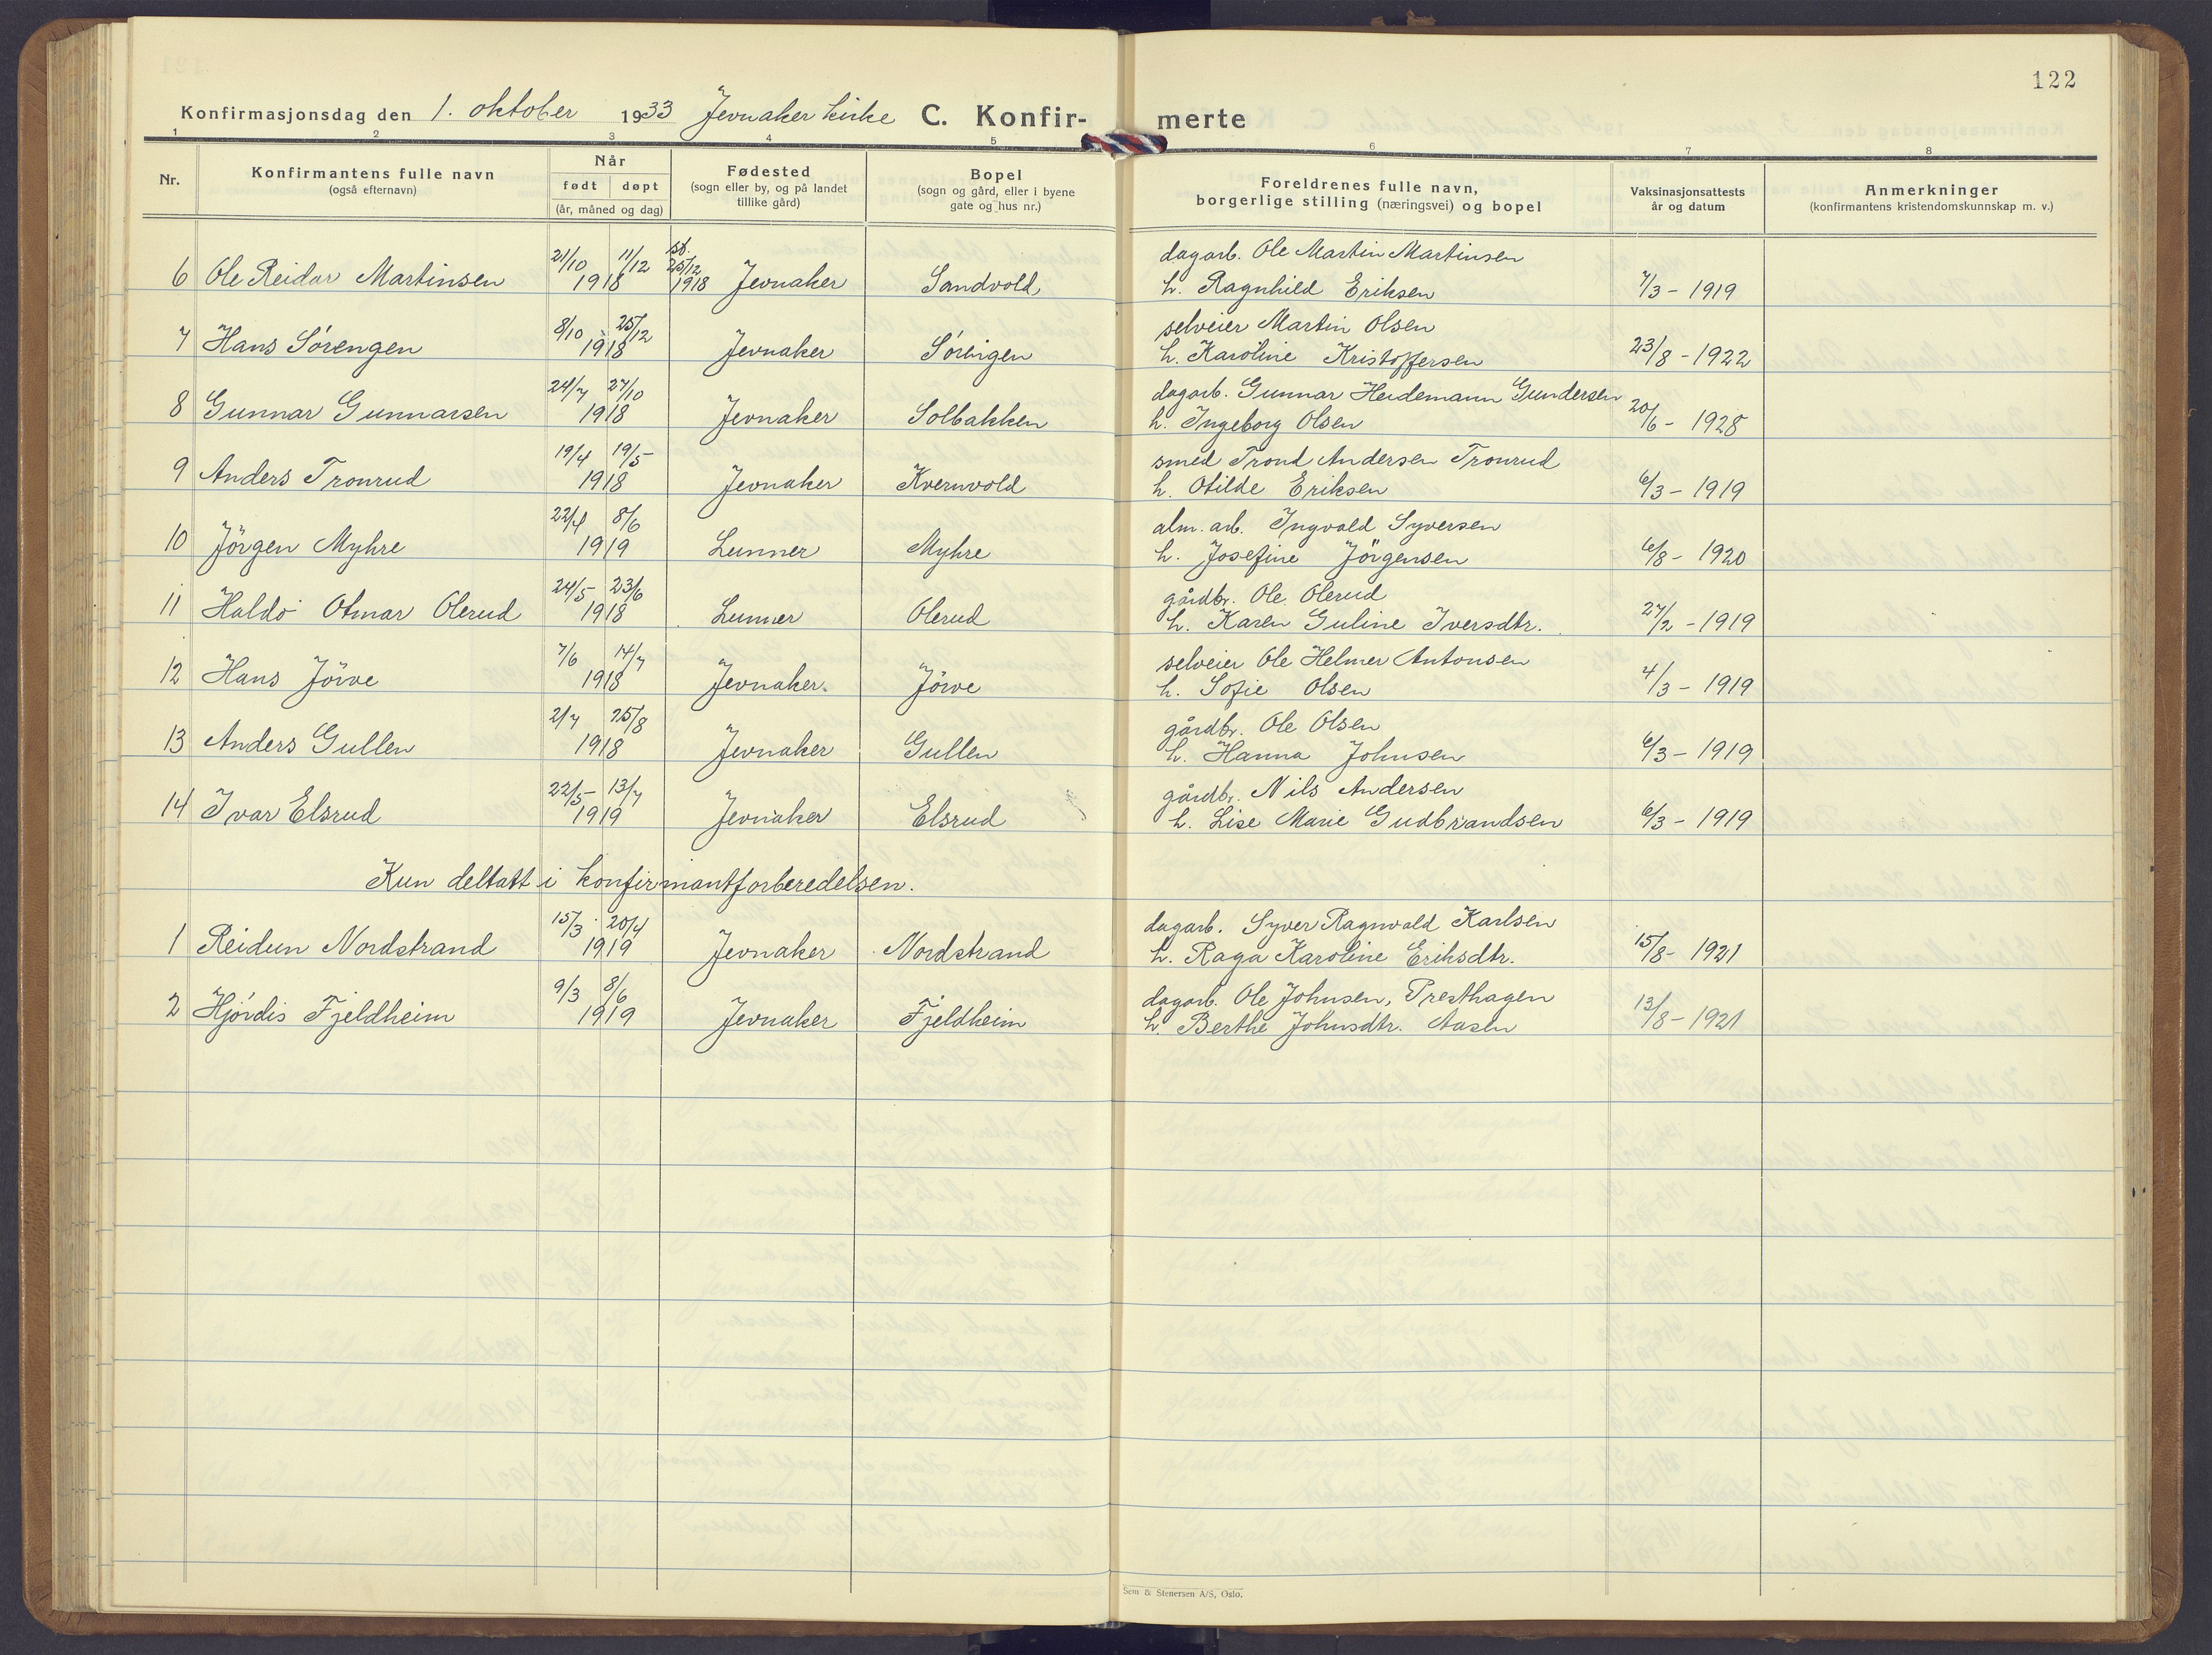 122
Konfirmasjonsdag den 1. oktober 1933 Jevnaker kirke C. Konfir- merte
1 2 3 4 5 6 7 8
Nr. Konfirmantens fulle navn (også efternavn) Når født døpt (år, måned og dag) Fødested (sogn eller by, og på landet tillike gård) Bopel (sogn og gård, eller i byene gate og hus nr.) Foreldrenes fulle navn, borgerlige stilling (næringsvei) og bopel Vaksinasjonsattests år og datum Anmerkninger (konfirmantens kristendomskunnskap m. v.)
21/10 11/12 st. 25/12 dagarb. Ole Martin Martinsen
6 Ole Reidar Martinsen 1918 1918 Jevnaker Sandvold h. Ragnhild Eriksen 7/3 - 1919
8/10 25/12 selveier Martin Olsen
7 Hans Sørengen 1918 Jevnaker h. Karoline Kristoffersen 23/8 - 1922
24/7 27/10 dagarb. Gunnar Heidemann Gundersen
8 Gunnar Gunnarsen 1918 Jevnaker Solbakken h. Ingeborg Olsen 20/6 - 1928
19/4 19/5 smed Trond Andersen Tronrud
9 Anders Tronrud 1918 Jevnaker Kvernvold h. Otilde Eriksen 6/3 - 1919
22/4 8/6 alm. arb. Ingvald Syversen
10 Jörgen Myhre 1919 Lunner Myhre h. Josefine Jörgensen 6/8 - 1920
24/5 23/6 gårdbr. Ole Olerud
11 Haldo Otmar Olerud 1918 Lunner Olerud h. Karen Guline Iversdtr. 27/2 - 1919
7/6 14/7 selveier Ole Helmer Antonsen
12 Hans Jörve 1918 Jevnaker. Jörve h. Sofie Olsen 4/3 - 1919
2/7 25/8 gårdbr. Ole Olsen
13 Anders Gullen 1918 Jevnaker Gullen h. Hanna Johnsen 6/3 - 1919
22/5 13/7 gårdbr. Nils Andersen
14 Ivar Elsrud 1919 Jevnaker Elsrud h. Lise Marie Gudbrandsen 6/3 - 1919
Kun deltatt i konfirmantforberedelsen.
15/3 20/4 dagarb. Syver Ragnvald Karlsen
1 Reidun Nordstrand 1919 Jevnaker Nordstrand h. Raga Karoline Eriksdtr. 15/8 - 1921
9/3 8/6 dagarb. Ole Johnsen, Presthagen
2 Hjördis Fjeldheim 1919 Jevnaker Fjeldheim h. Berthe Johnsdtr. Aasen 13/8 - 1921
Sem & Stenersen A/S, Oslo.